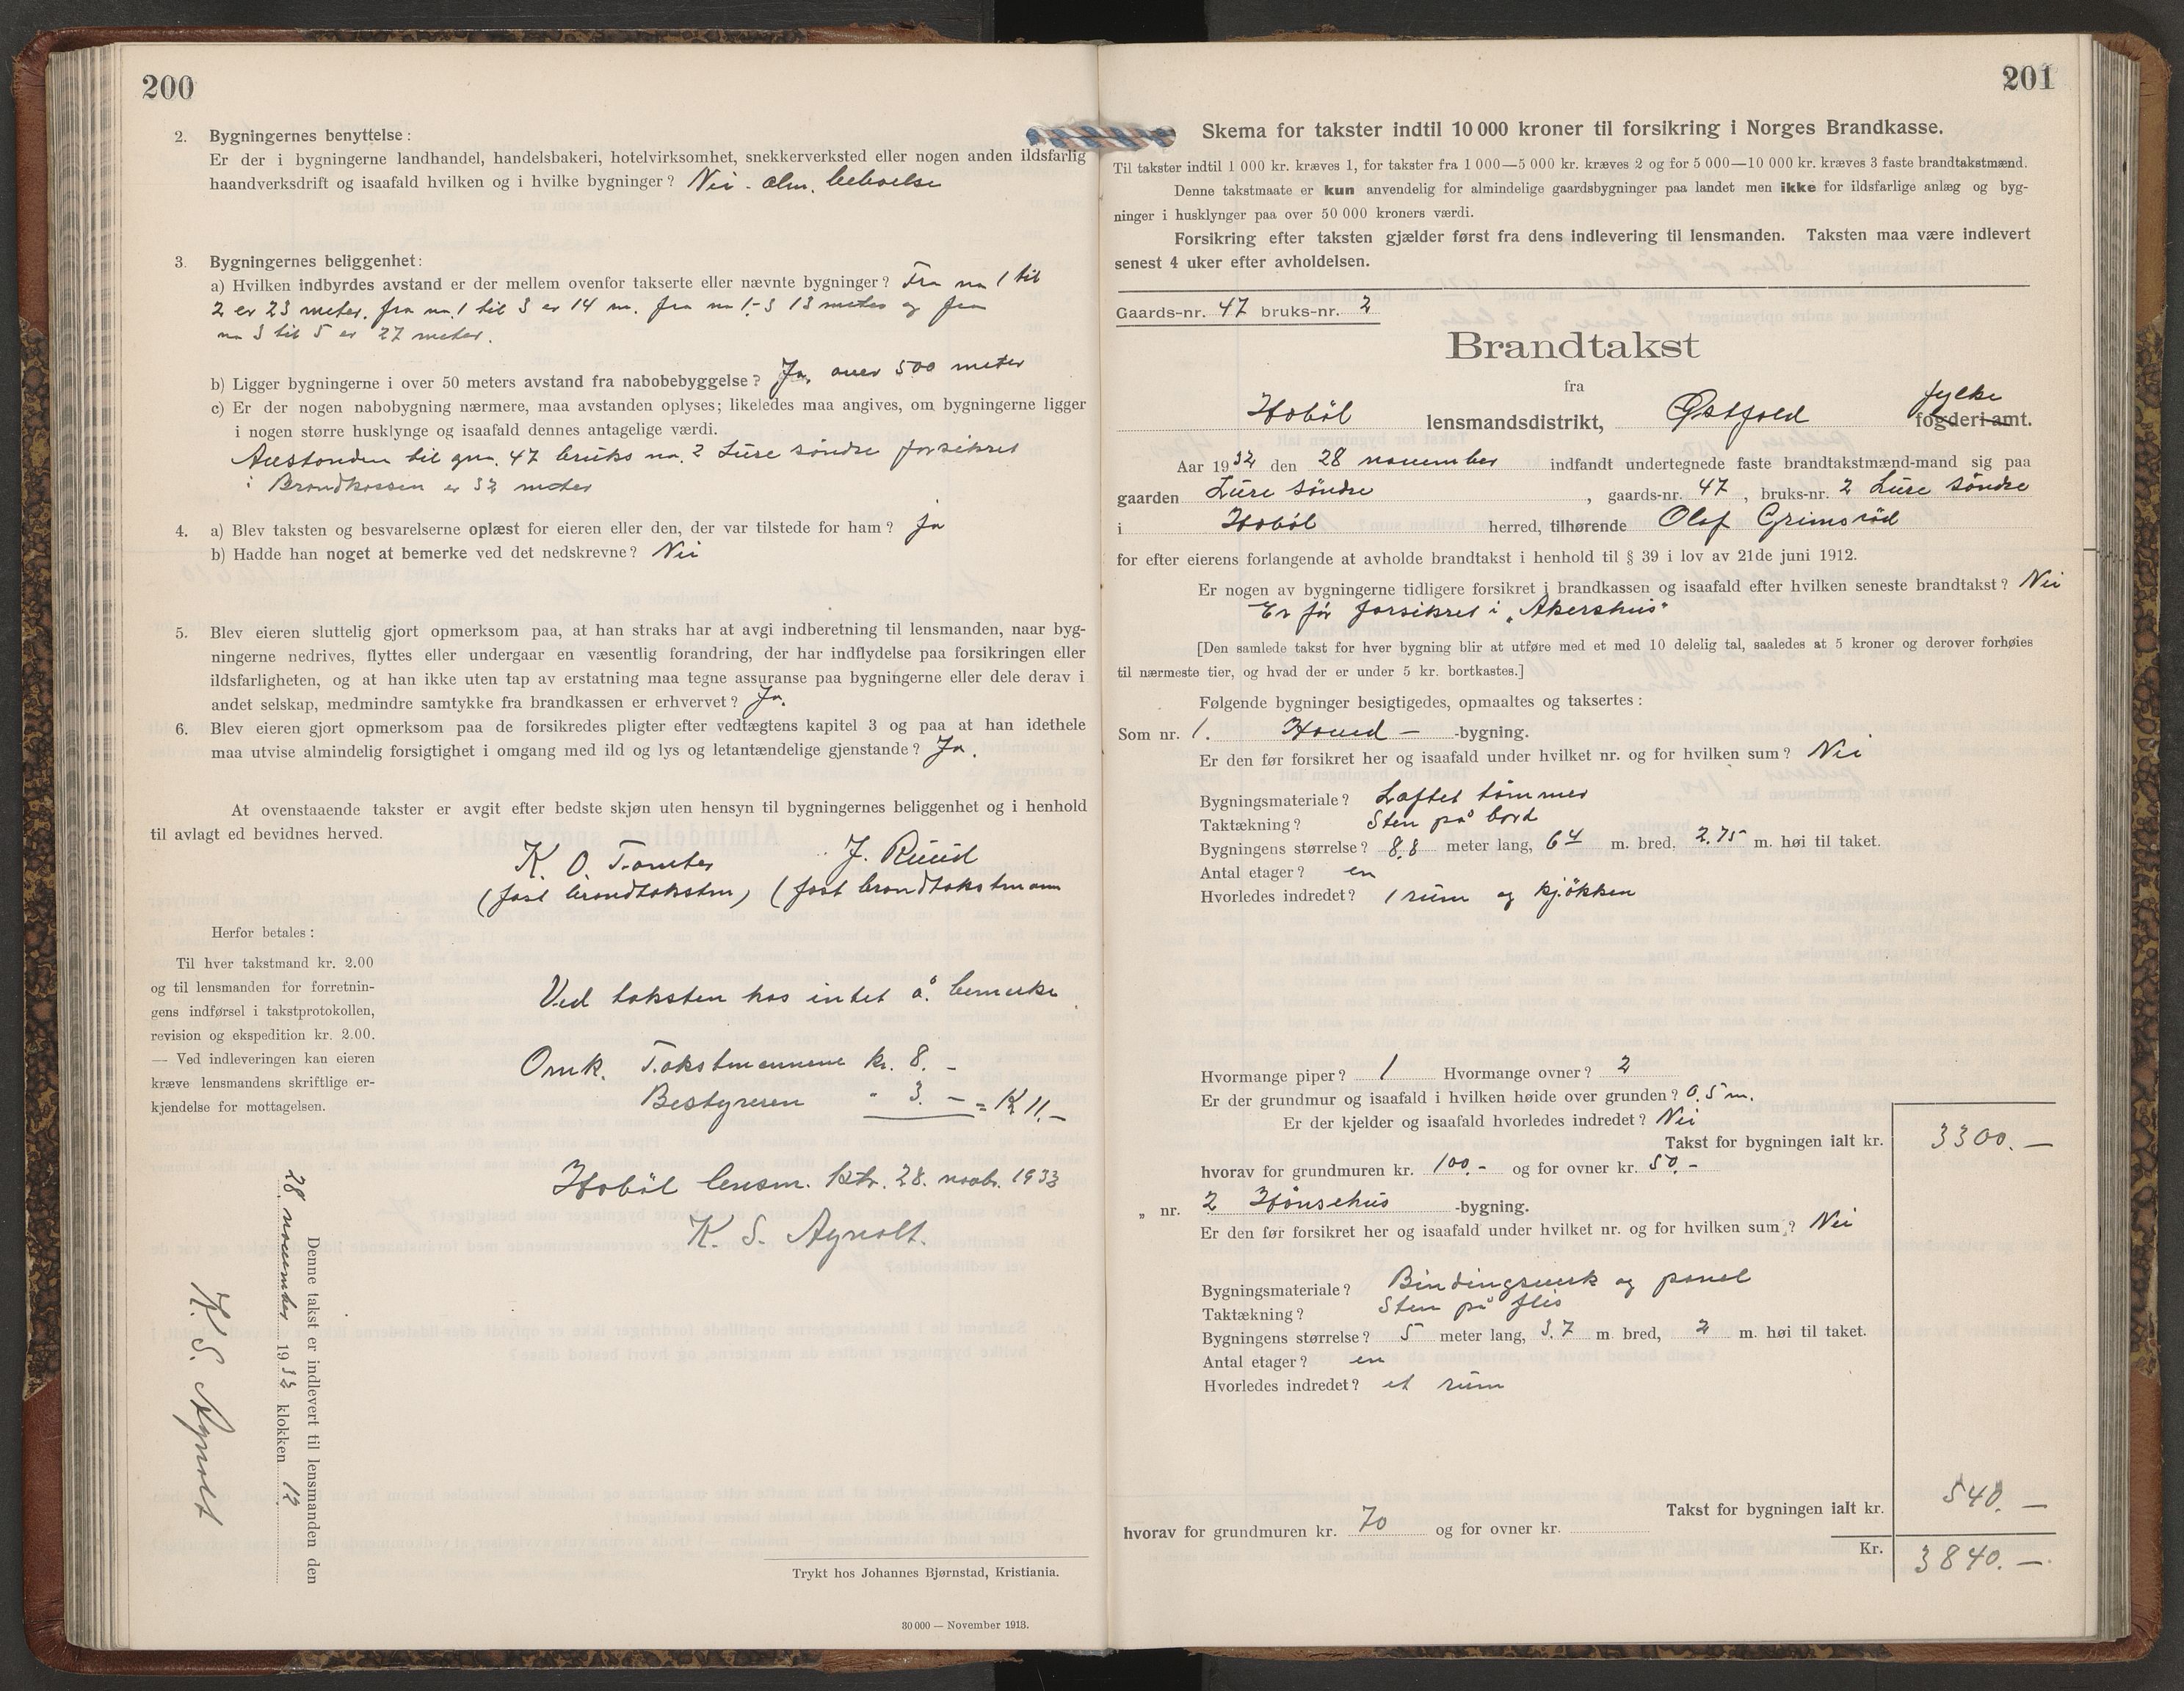 200
2. Bygningernes benyttelse:
Er der i bygningerne landhandel, handelsbakeri, hotelvirksomhet, snekkerverksted eller nogen anden ildsfarlig
haandverksdrift og isaafald hvilken og i hvilke bygninger? Nei - alm. beboelse
3. Bygningernes beliggenhet:
a) Hvilken indbyrdes avstand er der mellem ovenfor takserte eller nævnte bygninger? Fra no 1 til
2 er 23 meter. fra no. 1 til 3 er 14 m. fra no 1-3 13 meter og fra
no 3 til 5 er 27 meter.
b) Ligger bygningerne i over 50 meters avstand fra nabobebyggelse? Ja, over 500 meter
c) Er der nogen nabobygning nærmere, maa avstanden oplyses; likeledes maa angives, om bygningerne ligger
i nogen større husklynge og isaafald dennes antagelige værdi.
Avstanden til gnr. 47 bruks no. 2 Lure søndre forsikret
i Brandkassen er 32 meter
4. a) Blev taksten og besvarelserne oplæst for eieren eller den, der var tilstede for ham? Ja
b) Hadde han noget at bemerke ved det nedskrevne? Nei
5. Blev eieren sluttelig gjort opmerksom paa, at han straks har at avgi indberetning til lensmanden, naar byg-
ningerne nedrives, flyttes eller undergaar en væsentlig forandring, der har indflydelse paa forsikringen eller
ildsfarligheten, og at han ikke uten tap av erstatning maa tegne assuranse paa bygningerne eller dele derav i
andet selskap, medmindre samtykke fra brandkassen er erhvervet? Ja.
6. Blev eieren gjort opmerksom paa de forsikredes pligter efter vedtægtens kapitel 3 og paa at han idethele
maa utvise almindelig forsigtighet i omgang med ild og lys og letantændelige gjenstande? Ja.
At ovenstaaende takster er avgit efter bedste skjøn uten hensyn til bygningernes beliggenhet og i henhold
til avlagt ed bevidnes herved.
K. O. Tomter J. Ruud
(fast brandtakstm) (fast brandtakstmann
Herfor betales:
Til hver takstmand kr. 2.00
og til lensmanden for forretnin-
gens indførsel i takstprotokollen,
revision og ekspedition kr. 2.00.
— Ved indleveringen kan eieren
kræve lensmandens skriftlige er-
kjendelse for mottagelsen.
Ved taksten hos intet å bemerke
Omk. Takstmennene kr. 8. -
Bestyreren " 3. - = Kr 11. -
Hobøl lensm. ktr. 28. novbr. 1933
K. S. Agnalt.
Denne takst er indlevert til lensmanden den
28 november 1932 klokken 12
K. S. Agnalt
Trykt hos Johannes Bjørnstad, Kristiania.
30 000 — November 1913.
201
Skema for takster indtil 10 000 kroner til forsikring i Norges Brandkasse.
Til takster indtil 1 000 kr. kræves 1, for takster fra 1 000—5 000 kr. kræves 2 og for 5 000—10 000 kr. kræves 3 faste brandtakstmænd.
Denne takstmaate er kun anvendelig for almindelige gaardsbygninger paa landet men ikke for ildsfarlige anlæg og byg-
ninger i husklynger paa over 50 000 kroners værdi.
Forsikring efter taksten gjælder først fra dens indlevering til lensmanden. Taksten maa være indlevert
senest 4 uker efter avholdelsen.
Gaards-nr. 47 bruks-nr. 2
Brandtakst
fra
Hobøl lensmandsdistrikt, Østfold fylke fogderi amt.
Aar 1932 den 28 november indfandt undertegnede faste brandtakstmænd-mand sig paa
gaarden Lure søndre, gaards-nr. 47, bruks-nr. 2 Lure søndre
i Hobøl herred, tilhørende Olaf Grimsrød
for efter eierens forlangende at avholde brandtakst i henhold til § 39 i lov av 21de juni 1912.
Er nogen av bygningerne tidligere forsikret i brandkassen og isaafald efter hvilken seneste brandtakst? Nei
Er før forsikret i „Akershus"
[Den samlede takst for hver bygning blir at utføre med et med 10 delelig tal, saaledes at 5 kroner og derover forhøies
til nærmeste tier, og hvad der er under 5 kr. bortkastes.]
Følgende bygninger besigtigedes, opmaaltes og taksertes:
Som nr. 1. Hoved - -bygning.
Er den før forsikret her og isaafald under hvilket nr. og for hvilken sum? Nei
Bygningsmateriale? Laftet tømmer
Taktækning? Sten på bord
Bygningens størrelse? 8.8 meter lang, 64 m. bred. 2.75 m. høi til taket.
Antal etager? en
Hvorledes indredet? 1 rum og kjøkken
Hvormange piper? 1 Hvormange ovner? 2
Er der grundmur og isaafald i hvilken høide over grunden? 0.5 m.
Er der kjelder og isaafald hvorledes indredet? Nei
Takst for bygningen ialt kr. 3300. —
hvorav for grundmuren kr. 100. - og for ovner kr. 50. -
„ nr. 2 Hønsehus -bygning.
Er den før forsikret her og isaafald under hvilket nr. og for hvilken sum? Nei
Bygningsmateriale? Bindingsverk og panel
Taktækning? Sten på flis
Bygningens størrelse? 5 meter lang, 3.7 m. bred, 2 m. høi til taket.
Antal etager? en
Hvorledes indredet? et rum
Takst for bygningen ialt kr. 540. —
hvorav for grundmuren kr. 70 og for ovner kr.
Kr. 3840. —